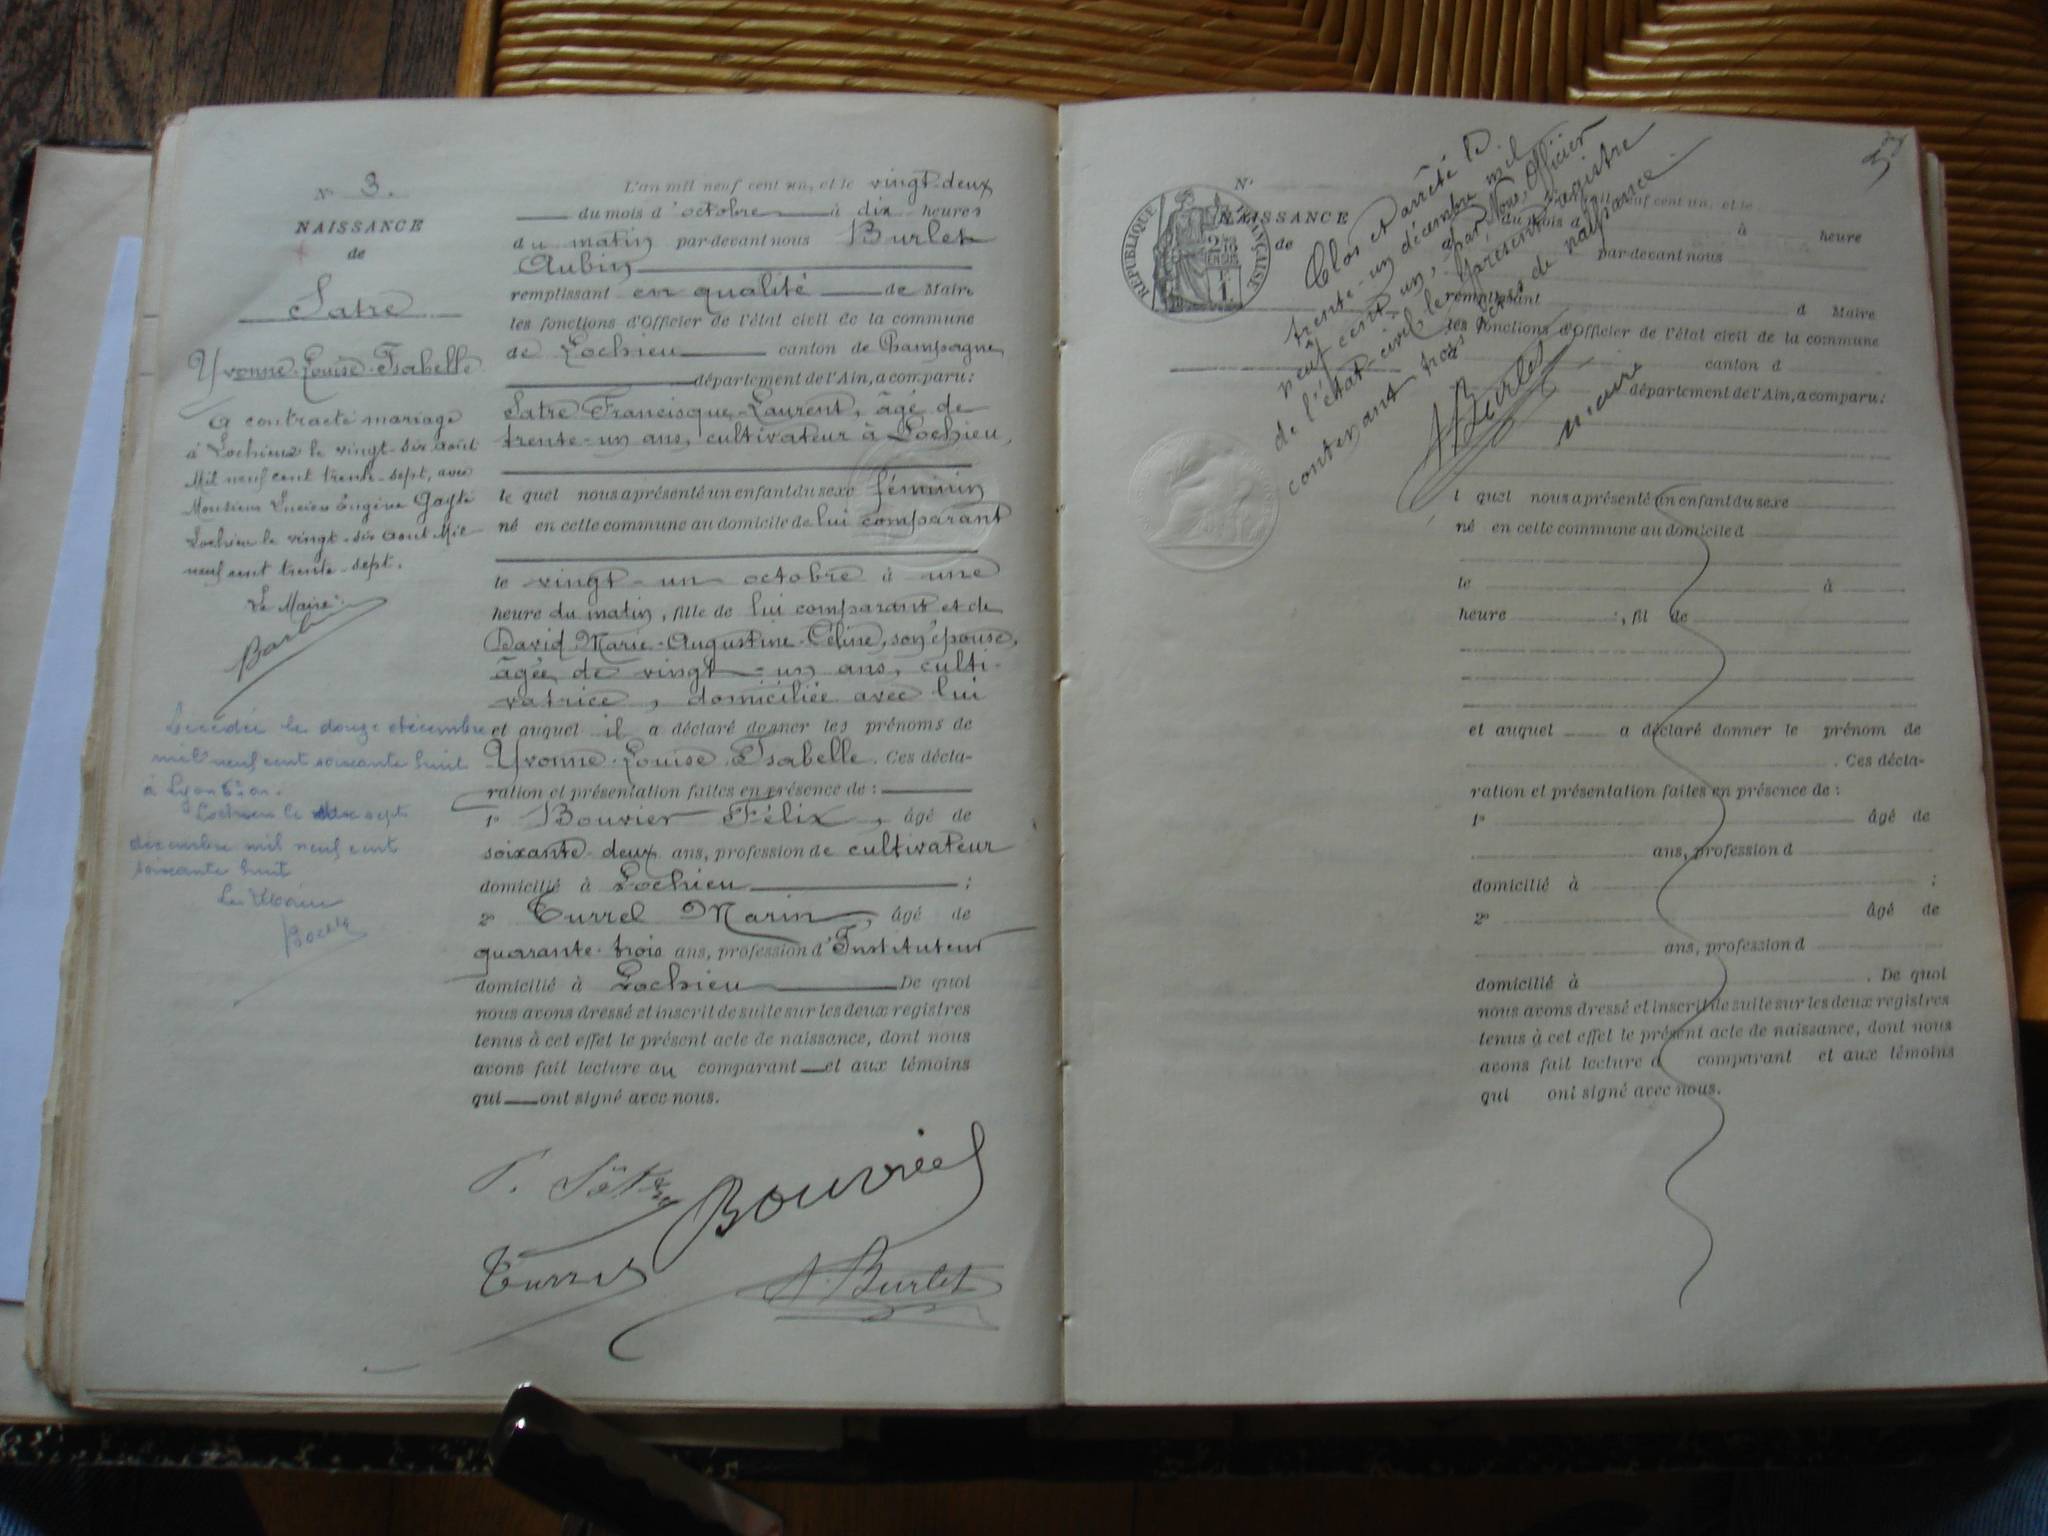 N° 3.
NAISSANCE
de
Satre
Yvonne-Louise-Isabelle
a contracté mariage
à Lochieu le vingt-six août
Mil neuf cent trente-sept, avec
Monsieur Lucien Eugène
Lochieu le vingt-six août Mil
neuf cent trente-sept.
Le Maire:
Décédée le douze décembre
mil neuf cent soixante huit
à Lyon
Lochieu le sept
décembre mil neuf cent
soixante huit
Le Maire
L'an mil neuf cent un, et le vingt-deux
du mois d'octobre à dix heures
du matin par-devant nous Burlet
Aubin
remplissant en qualité de Maire
les fonctions d'Officier de l'état civil de la commune
de Lochieu canton de Champagne
département de l'Ain, a comparu:
Satre Francisque-Laurent, âgé de
trente-un ans, cultivateur à Lochieu,
le quel nous a présenté un enfant du sexe féminin
né en cette commune au domicile de lui comparant
le vingt-un octobre à une
heure du matin, fille de lui comparant et de
David Marie-Augustine-Céline, son épouse,
âgée de vingt-un ans, culti-
vatrice, domiciliée avec lui
et auquel il a déclaré donner les prénoms de
Yvonne-Louise-Isabelle. Ces décla-
ration et présentation faites en présence de :
1° Bouvier Félix, âgé de
soixante-deux ans, profession de cultivateur
domicilié à Lochieu ;
2° Turrel Marin, âgé de
quarante-trois ans, profession d'Instituteur
domicilié à Lochieu De quoi
nous avons dressé et inscrit de suite sur les deux registres
tenus à cet effet le présent acte de naissance, dont nous
avons fait lecture au comparant et aux témoins
qui ont signé avec nous.
Bouvier
Turrel
A. Burlet
33
N°
RÉPUBLIQUE FRANÇAISE
NAISSANCE
de
Clos et arrêté le
trente-un décembre mil
neuf cent un, par Nous, Officier
de l'état-civil, le présent registre
contenant trois actes de naissance.
A. Burlet
maire
mil neuf cent un, et le
du mois d à heure
par-devant nous
remplissant d Maire
les fonctions d'Officier de l'état civil de la commune
d canton d
département de l'Ain, a comparu:
l quel nous a présenté un enfant du sexe
né en cette commune au domicile d
le à
heure , fil de
et auquel a déclaré donner le prénom de
. Ces décla-
ration et présentation faites en présence de :
1° âgé de
ans, profession d
domicilié à ;
2° âgé de
ans, profession d
domicilié à . De quoi
nous avons dressé et inscrit de suite sur les deux registres
tenus à cet effet le présent acte de naissance, dont nous
avons fait lecture a comparant et aux témoins
qui ont signé avec nous.